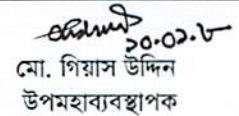 ২০.০১.৮
মো. গিয়াস উদ্দিন
উপমহাব্যবস্থাপক